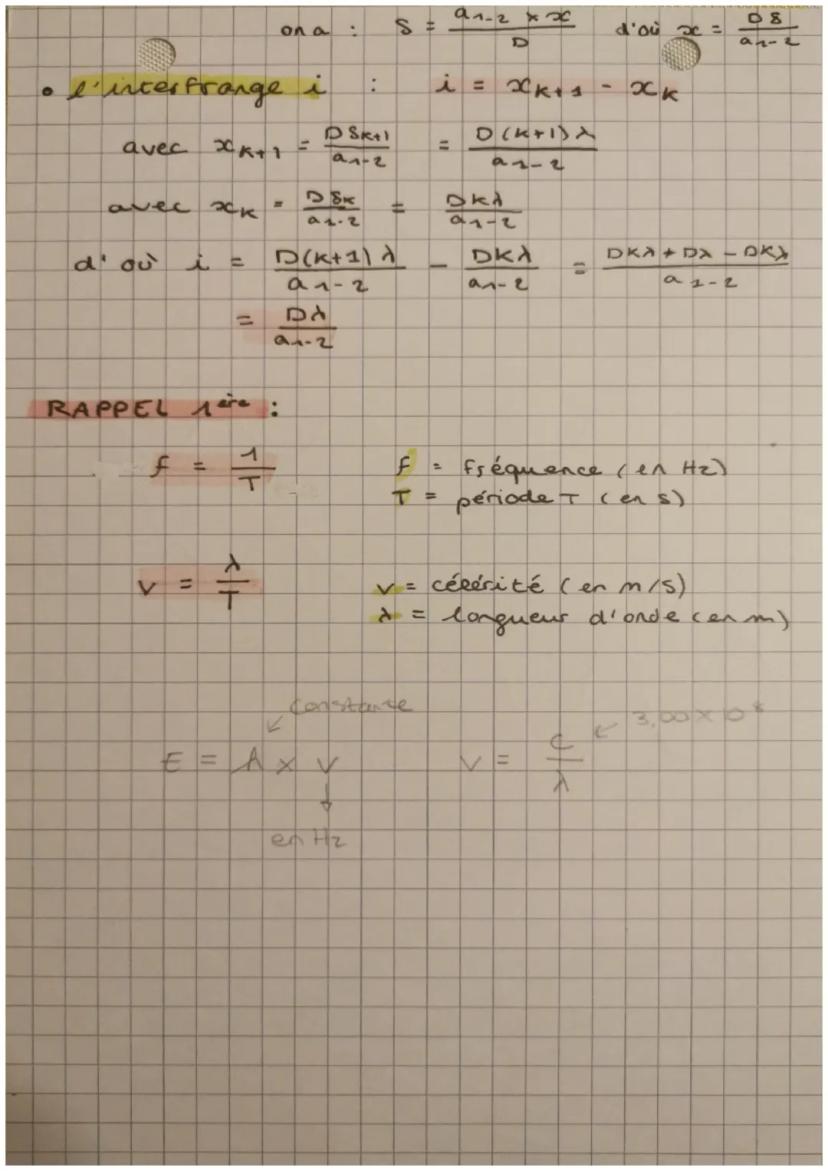 on a : δ = (a₁₋₂ × x)/D d'où x = Dδ/a₁₋₂
• l'interfrange i : i = x_K+1 - x_K
avec x_K+1 = Dδ_K+1/a₁₋₂ = D(K+1)λ/a₁₋₂
avec x_K = Dδ_K/a₁₋₂ = DKλ/a₁₋₂
d'où i = D(K+1)λ/a₁₋₂ - DKλ/a₁₋₂ = (DKλ + Dλ - DKλ)/a₁₋₂
= Dλ/a₁₋₂
RAPPEL 1ère :
f = 1/T f = fréquence (en Hz)
T = période T (en s)
v = λ/T v = célérité (en m/s)
λ = longueur d'onde (en m)
constante
E = h × ν ν = c/λ 3,00 × 10⁸
en Hz